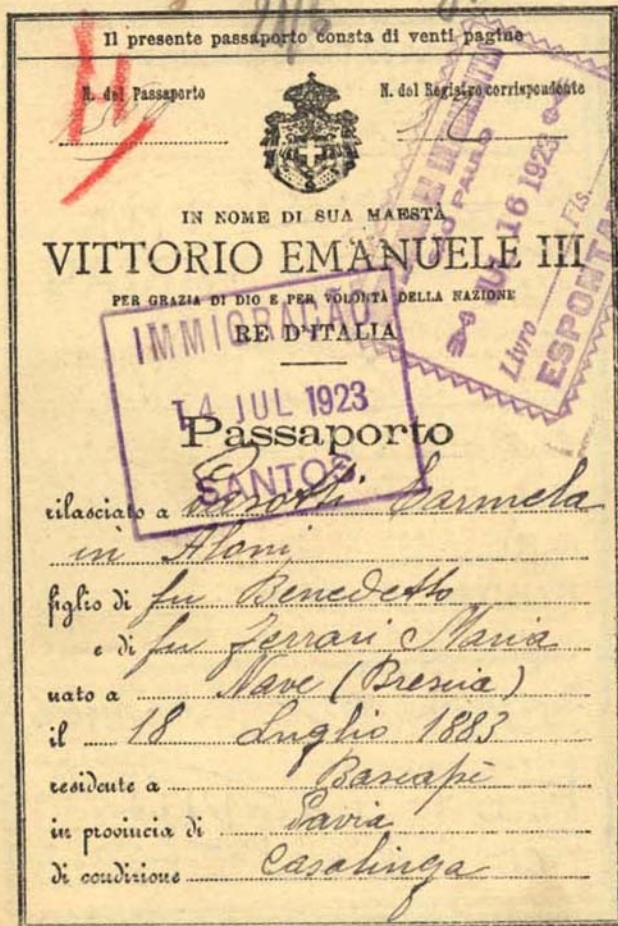 Il presente passaporto consta di venti pagine
N. del Passaporto
N. del Registro corrispondente
SÃO PAULO
JUL 16 1923
Livro Fls.
IN NOME DI SUA MAESTÀ
VITTORIO EMANUELE III
PER GRAZIA DI DIO E PER VOLONTÀ DELLA NAZIONE
RE D'ITALIA
IMMIGRAÇÃO
14 JUL 1923
SANTOS
Passaporto
rilasciato a Carmela
in Aloni
figlio di fu Benedetto
e di fu Ferrari Maria
nato a Nave (Brescia)
il 18 Luglio 1883
residente a Bascapè
in provincia di Pavia
di condizione Casalinga